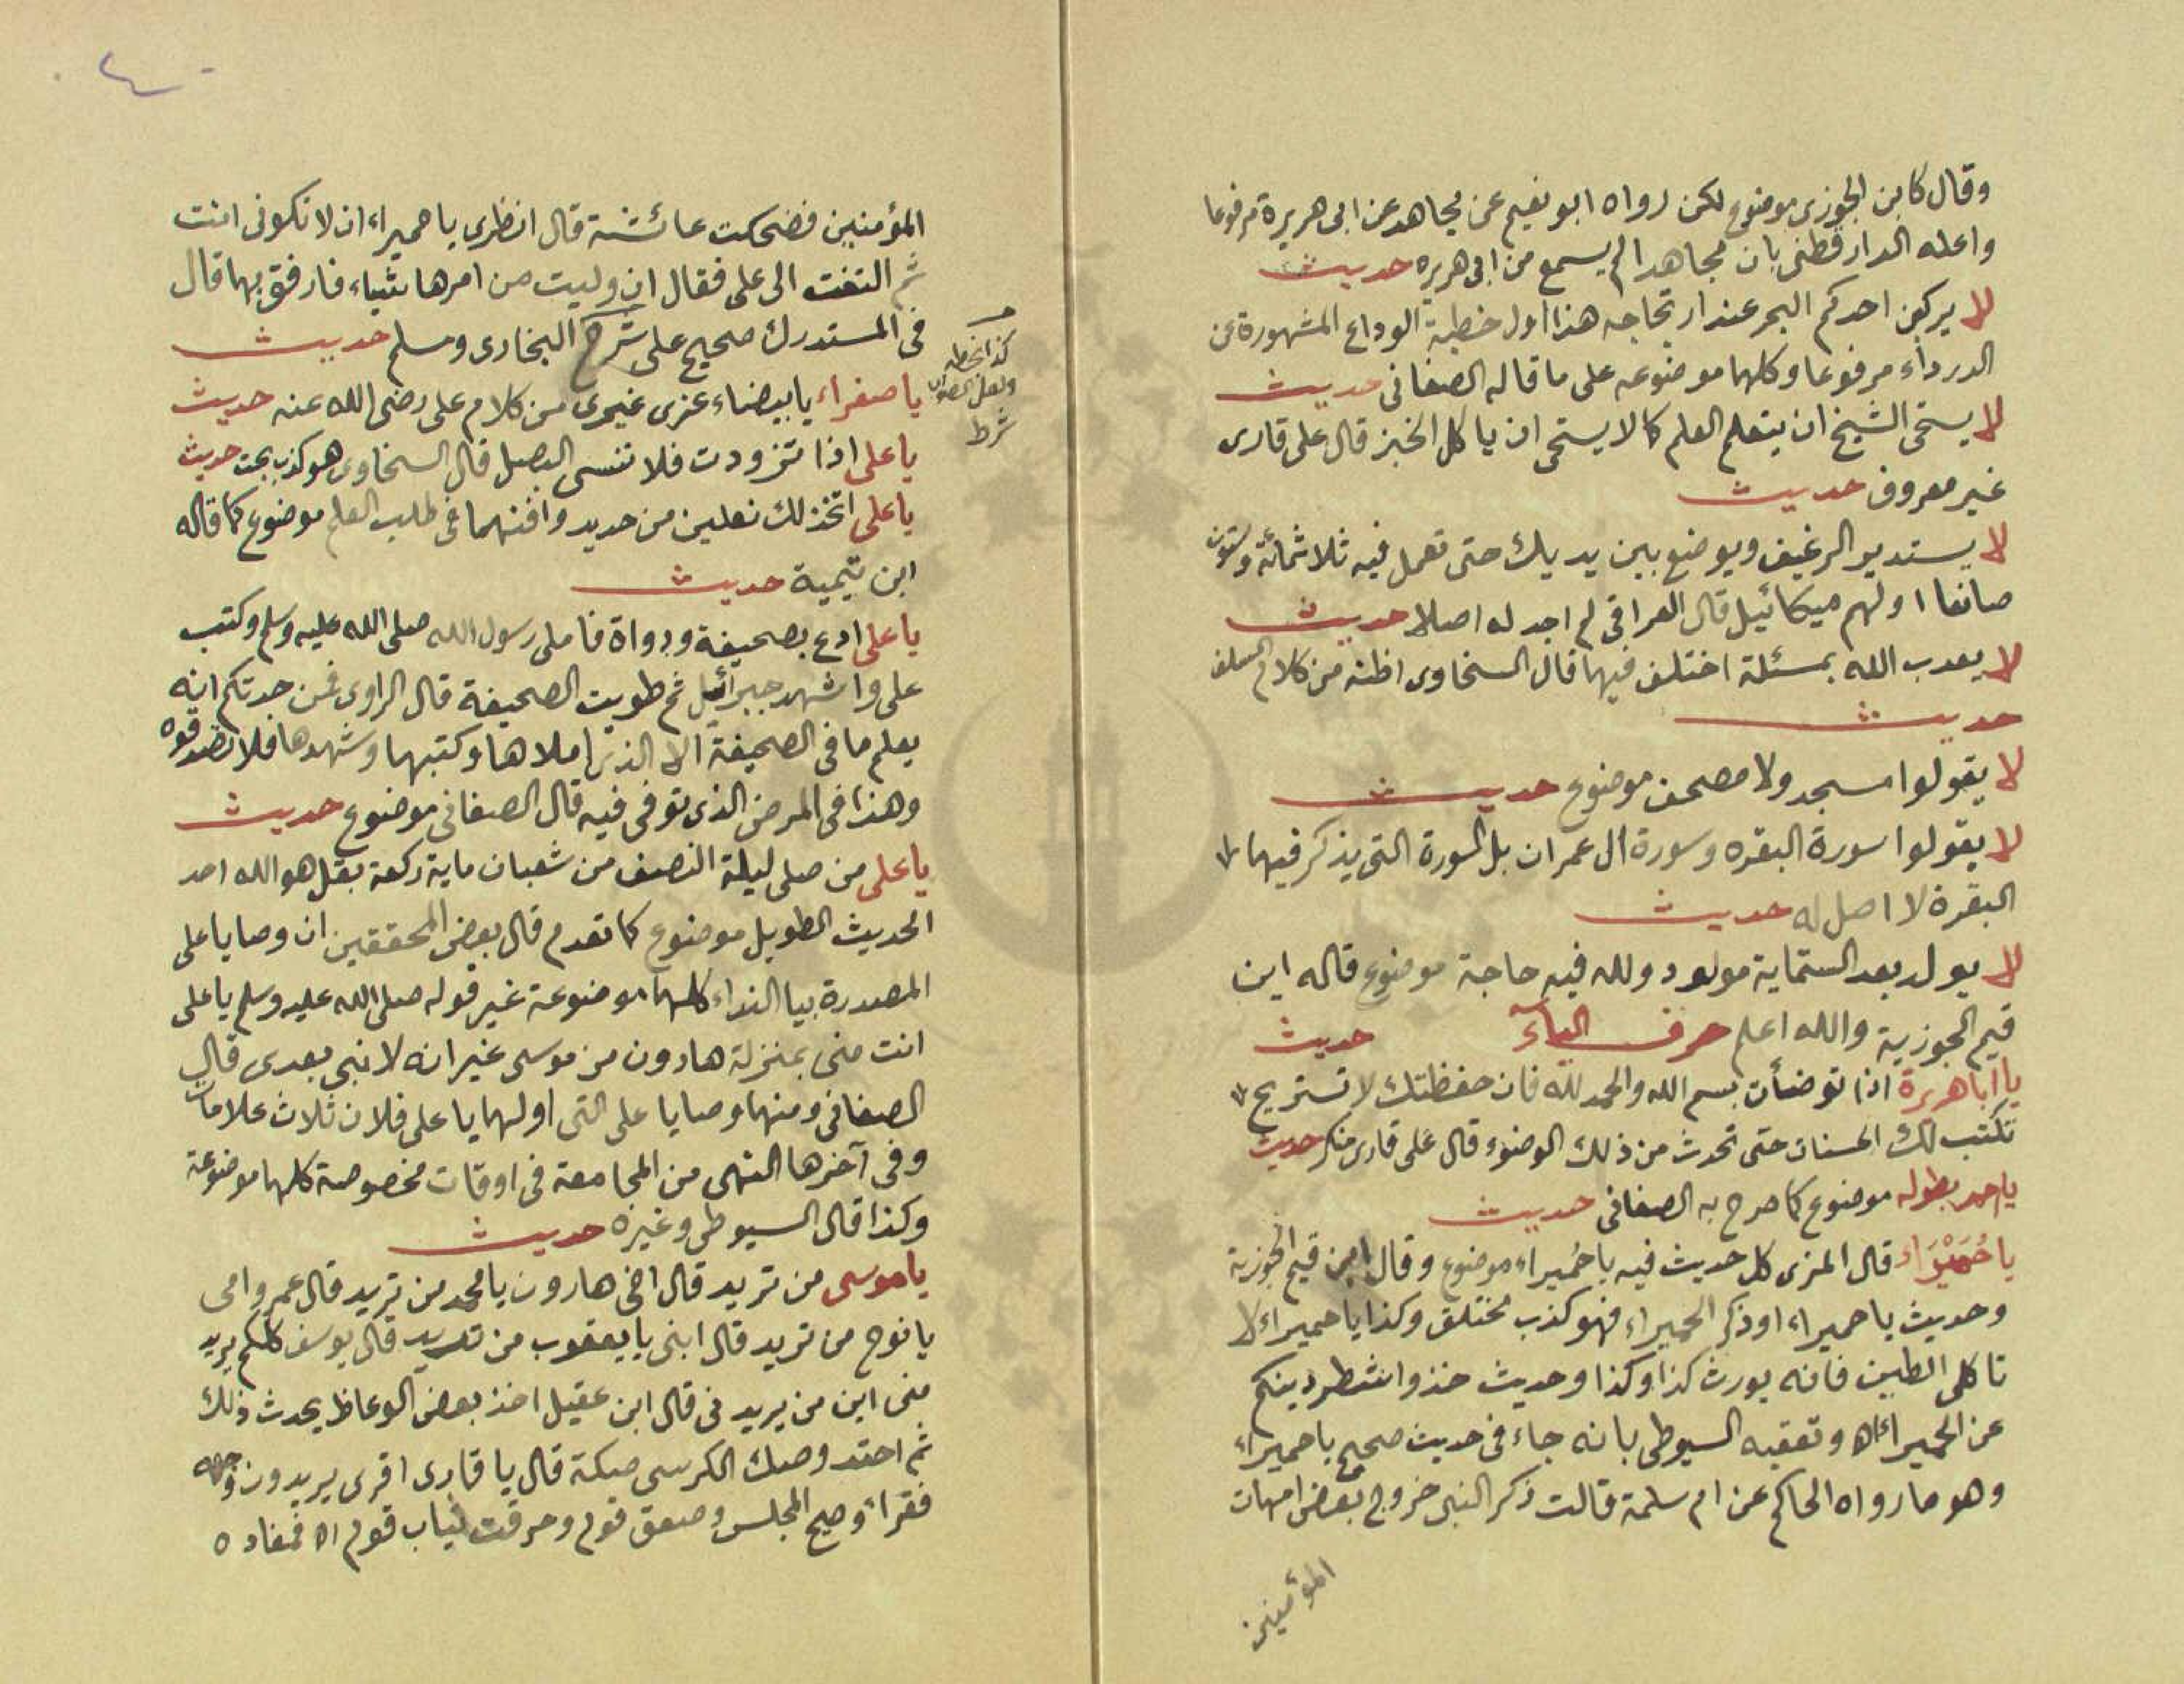 وقال كابن الجوزى موضوع لكن رواه ابو نعيم عن مجاهد عن ابى هريرة مرفوعا
واعله الدارقطنى بان مجاهدا لم يسمع من ابى هريره حديث
لا يركبن احدكم البحر عند ارتجاجه هذا اول خطبة الوداع المشهورة عن
الدرداء مرفوعا وكلها موضوعه على ما قاله الصغانى حديث
لا يستحى الشيخ ان يتعلم العلم كما لا يستحى ان ياكل الخبز قال على قارى
غير معروف حديث
لا يستدير الرغيف ويوضع بين يديك حتى تعمل فيه ثلاثمائة وستون
صانعا اولهم ميكائيل قال العراقى لم اجد له اصلا حديث
لا يعدب الله بمسئلة اختلف فيها قال السخاوى اظنه من كلام السلف
حديث
لا يقولوا مسجد ولا مصحف موضوع حديث
لا يقولوا سورة البقره وسورة ال عمران بل السورة التى يذكر فيها
البقرة لا اصل له حديث
لا يولد بعد الستماية مولود ولله فيه حاجة موضوع قاله ابن
قيم الجوزية والله اعلم حرف الياء حديث
يا ابا هريرة اذا توضأت بسم الله والحمد لله فان حفظتك لا تستريح
تكتب لك الحسنات حتى تحدث من ذلك الوضوء قال على قارى منكر حديث
يا حمد بطوله موضوع كما صرح به الصغانى حديث
يا حُمَيْرَاء قال المزى كل حديث فيه يا حُميراء موضوع وقال ابن قيم الجوزية
وحديث يا حميراء او ذكر الحميراء فهو كذب مختلق وكذا يا حميراء لا
تاكلى الطين فانه يورث كذا وكذا وحديث خذوا شطر دينكم
عن الحميراء اه وتعقبه السيوطى بانه جاء فى حديث صحيح يا حميراء
وهو ما رواه الحاكم عن ام سلمة قالت ذكر النبى خروج بعض امهات
المؤمنين
المؤمنين فضحكت عائشة قال انظرى يا حميراء ان لا تكونى انت
ثم التفت الى على فقال ان وليت من امرها شياء فارفق بها قال
فى المستدرك صحيح على شرح البخارى ومسلم حديث
كذا بخطه
ولعل الصواب
شرط
يا صفراء يا بيضاء غرى غيرى من كلام على رضى الله عنه حديث
يا على اذا تزودت فلا تنسى البصل قال السخاوى هو كذب بحت حديث
يا على اتخذ لك نعلين من حديد وافنهما فى طلب العلم موضوع كما قاله
ابن تيمية حديث
يا على ادع بصحيفة ودواة فاملى رسول الله صلى الله عليه وسلم وكتب
على واشهد جبرائيل ثم طويت الصحيفة قال الراوى فمن حدتكم انه
يعلم ما فى الصحيفة الا الذى املاها وكتبها وشهدها فلا تصدقوه
وهذا فى المرض الذى توفى فيه قال الصغانى موضوع حديث
يا على من صلى ليلة النصف من شعبان ماية ركعة بقل هو الله احد
الحديث الطويل موضوع كما تقدم قال بعض المحققين ان وصايا على
المصدرة بيا النداء كلها موضوعة غير قوله صلى الله عليه وسلم يا على
انت منى بمنزلة هارون من موسى غير انه لا نبى بعدى قال
الصغانى ومنها وصايا على التى اولها يا على فلان ثلاث علامات
وفى آخرها النهى من المجامعة فى اوقات مخصوصة كلها موضوعة
وكذا قال السيوطى وغيره حديث
يا موسى من تريد قال اخى هارون يا محمد من تريد قال عمى وامى
يا نوح من تريد قال ابنى يا يعقوب من تريد قال يوسف كلكم يريد
منى اين من يريد فى قال ابن عقيل اخذ بعض الوعاظ يحدث ذلك
ثم احتد وصك الكرسى صكة قال يا قارى اقرى يريدون وجهه
فقراء وصيح المجلس وصعق قوم وحرقت ثياب قوم اه فمفاده